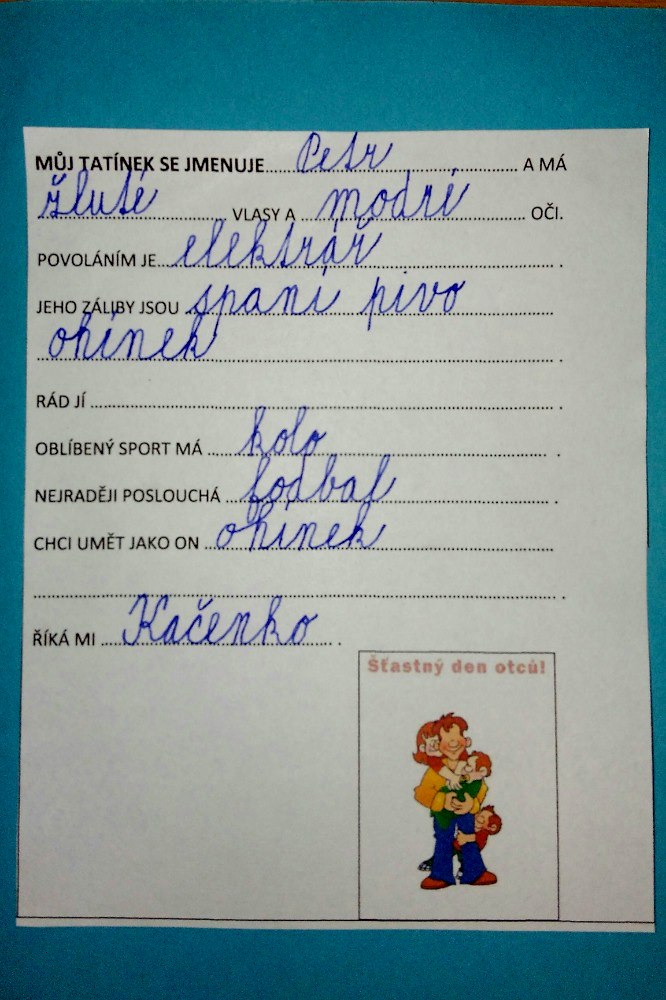 MŮJ TATÍNEK SE JMENUJE Petr A MÁ
žluté VLASY A modré OČI.
POVOLÁNÍM JE elektrář .
JEHO ZÁLIBY JSOU spaní pivo
ohínek .
RÁD JÍ .
OBLÍBENÝ SPORT MÁ kolo .
NEJRADĚJI POSLOUCHÁ fodbal .
CHCI UMĚT JAKO ON ohínek
.
ŘÍKÁ MI Kačenko .
Šťastný den otců!